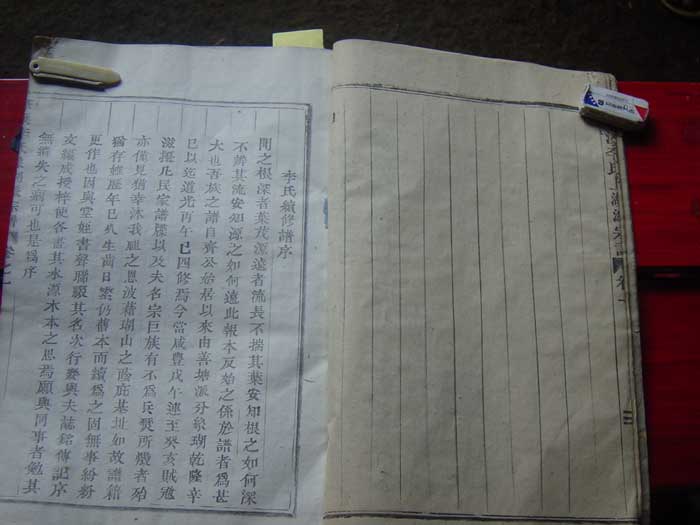 李氏續修譜序
聞之根深者葉茂源遠者流長不揣其葉安知根之如何深
不辨其流安知源之如何遠此報本反始之係於譜者爲甚
大也吾族之譜自齊公始居以來由善塘派分象瑚乾隆辛
巳以迄道光丙午已四修焉今當咸豊戊午連至癸亥賊
滋擾凡民家譜牒以及夫名宗巨族有不爲兵燹所燬者殆
亦僅見猶幸沐我祖之恩波藉瑚山之庇基址如故譜籍
猶存雖歷年已久生齒日繁仍舊本而續爲之固無事紛紛
更作也因與堂姪書聲聯綴其名次行與夫誌銘傳記序
文編成授梓使各盡其水源木本之思焉願與同事者勉其
無之可也是爲序